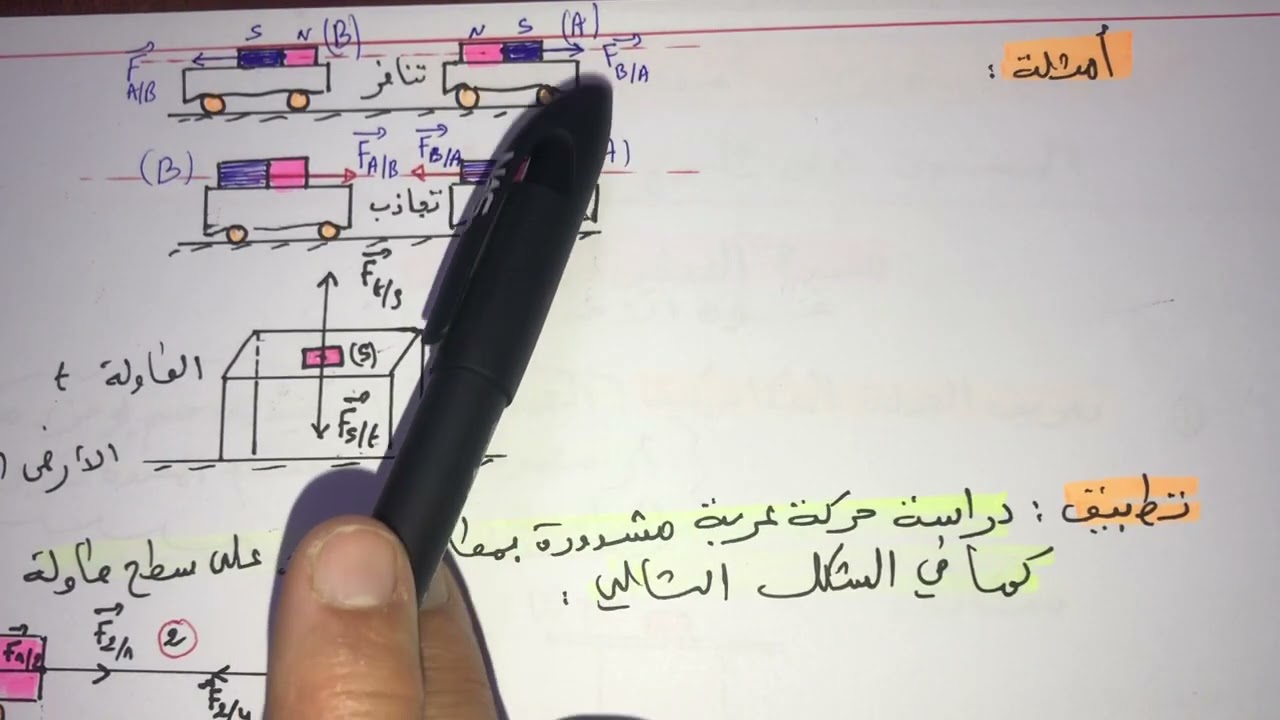 أمثلة :
S N (B) N S (A)
F A/B تنافر F B/A
(B) F A/B F B/A
تجاذب
F t/s
(S)
الطاولة t
F s/t
الأرض
تطبيق : دراسة حركة عربة مشدودة على سطح طاولة
كما في الشكل التالي :
F 2/1 2